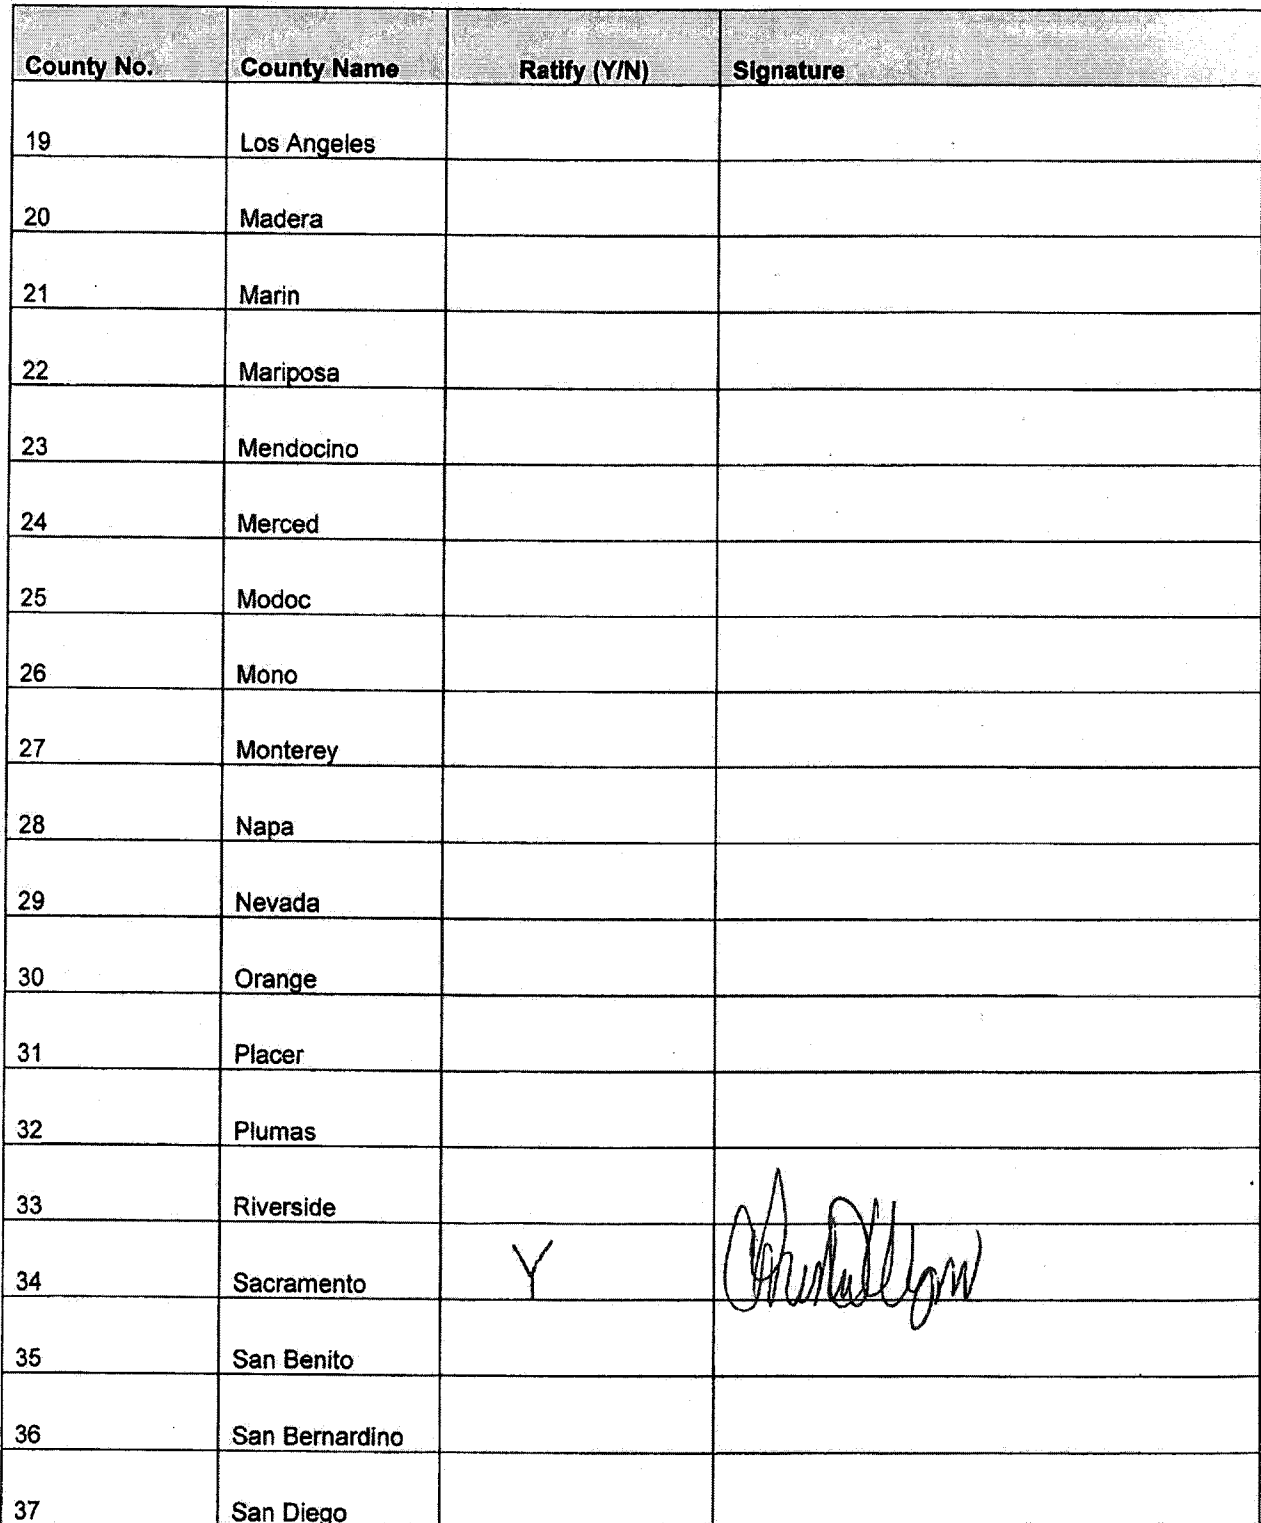 County No. County Name Ratify (Y/N) Signature
19 Los Angeles
20 Madera
21 Marin
22 Mariposa
23 Mendocino
24 Merced
25 Modoc
26 Mono
27 Monterey
28 Napa
29 Nevada
30 Orange
31 Placer
32 Plumas
33 Riverside
34 Sacramento Y
35 San Benito
36 San Bernardino
37 San Diego